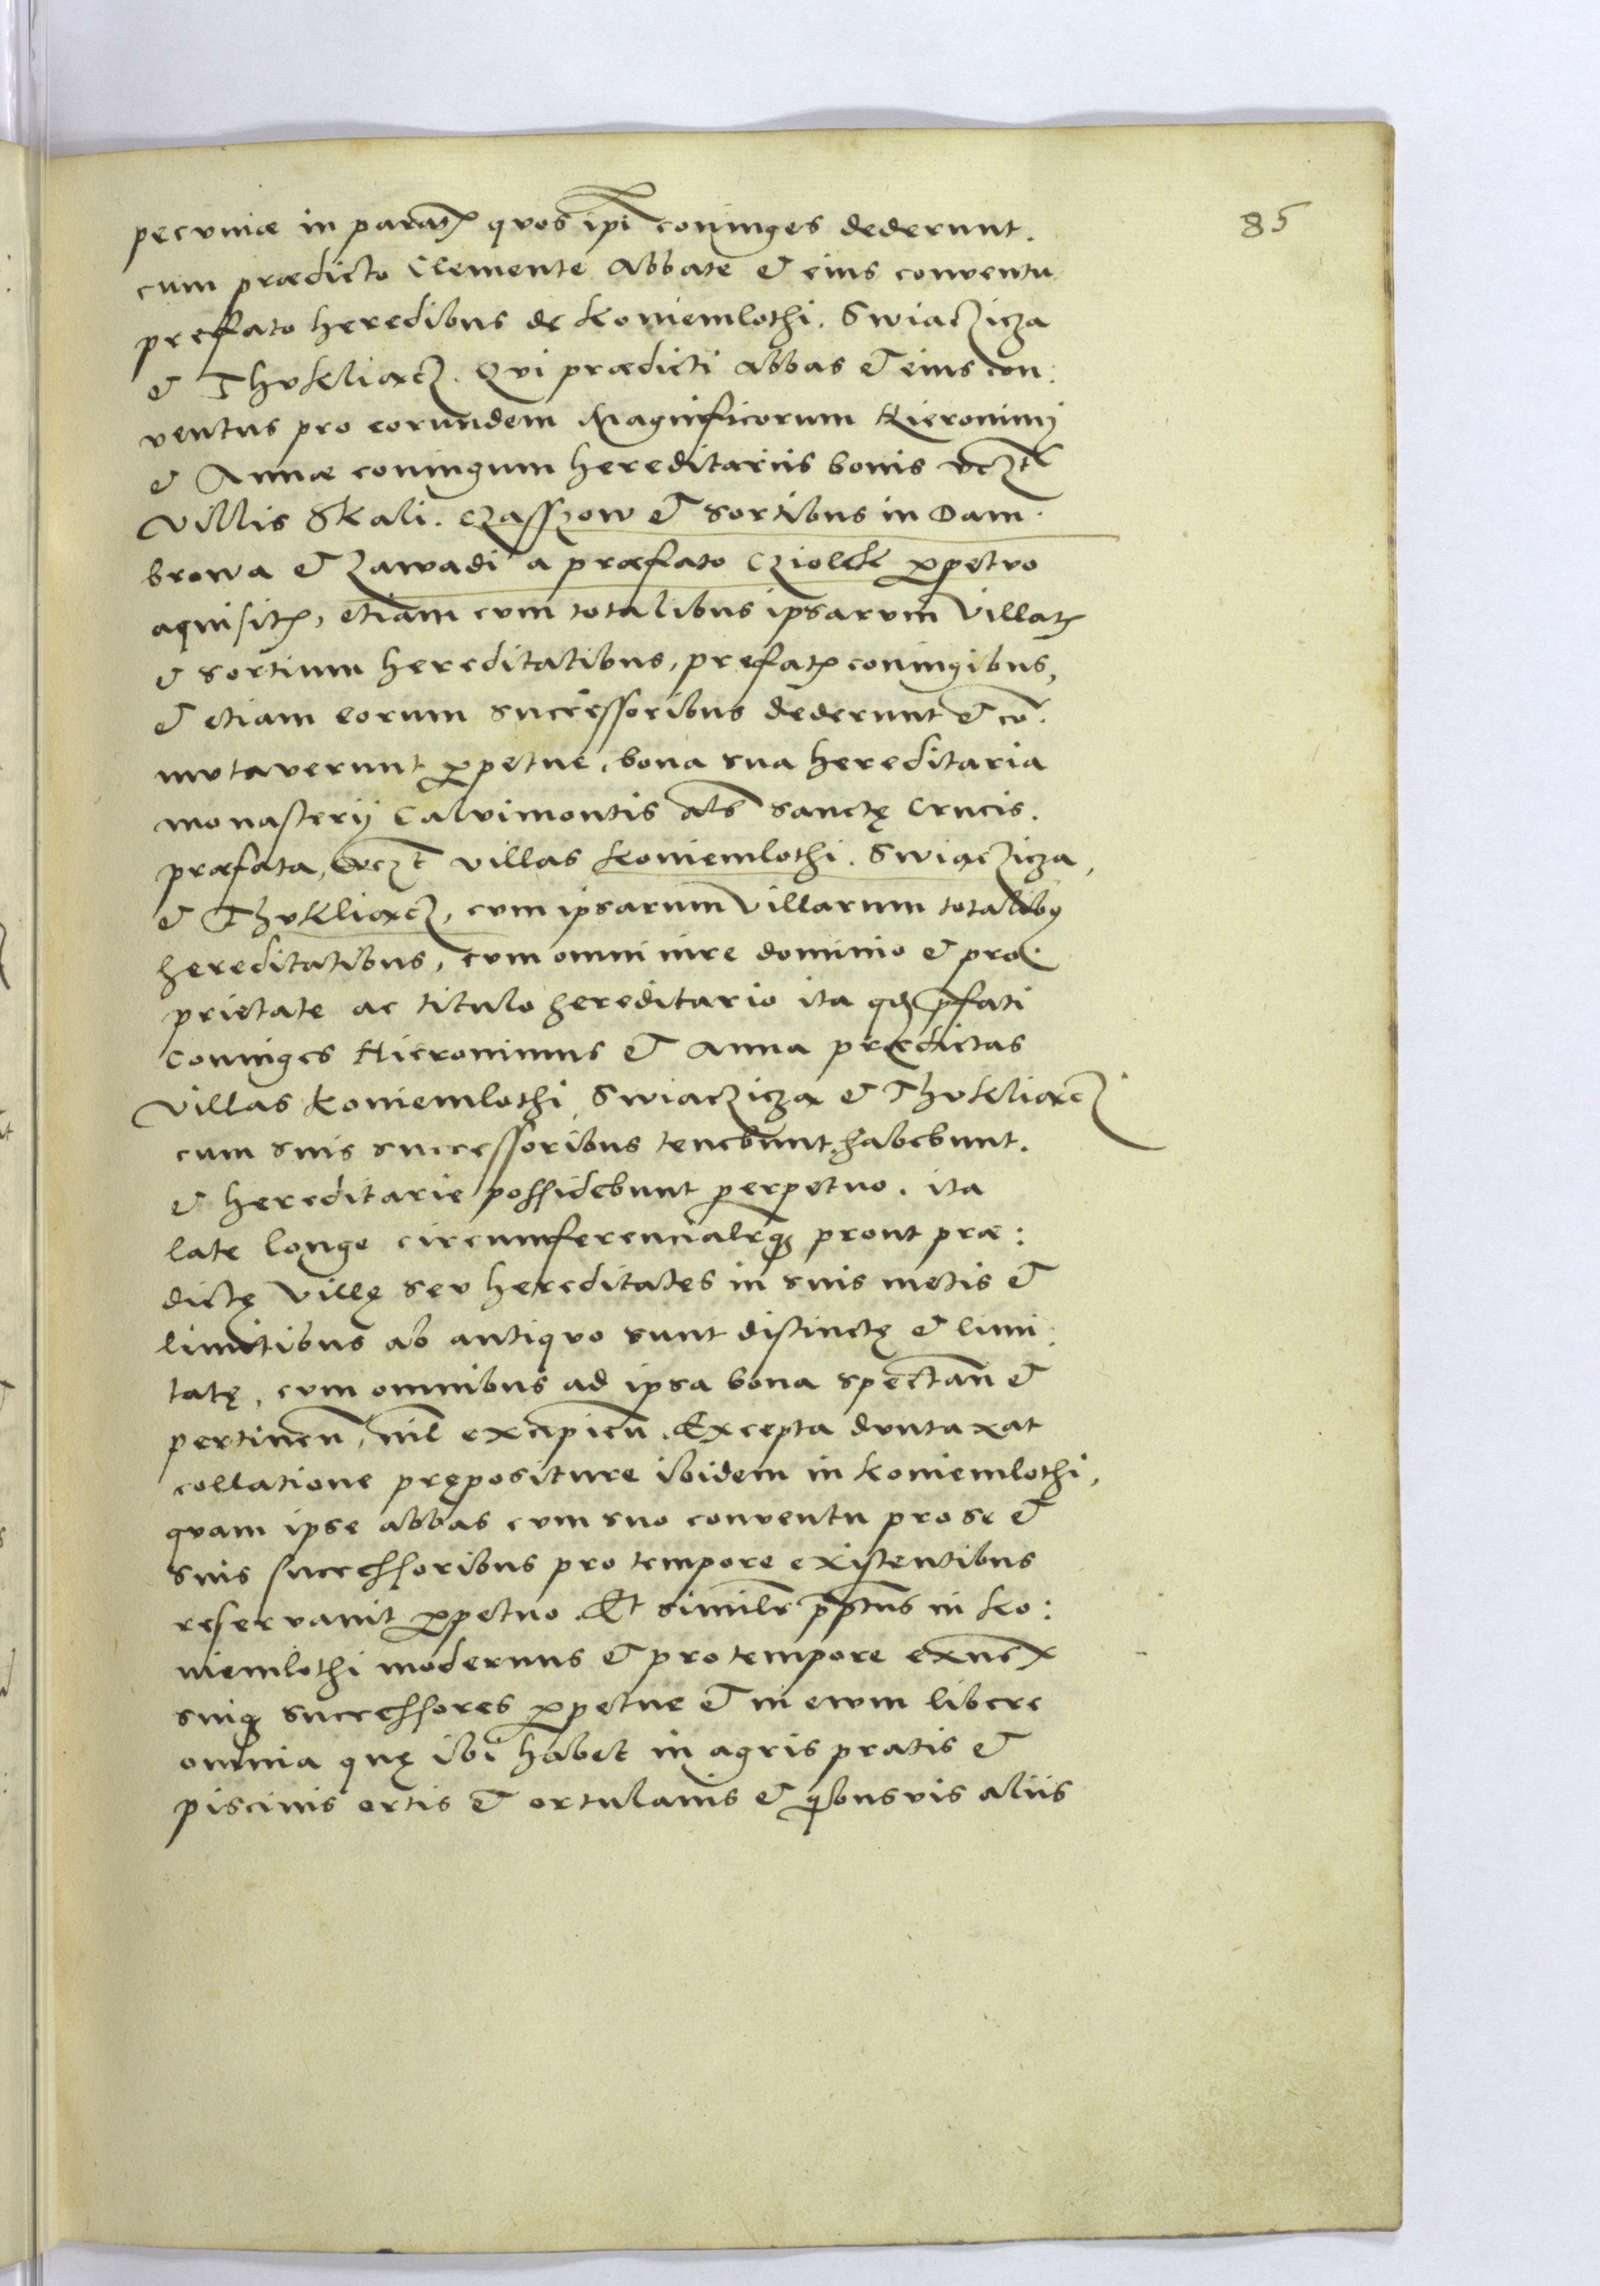 85
pecuniæ in paratꝭ quos ip̄i coniuges dederunt.
cum prædicto Clemente Abbate & eius conventu
prefato heredibus de Koniemlothi. Swiaczicza
& Thukliącz. Qui prædicti Abbas & eius con:
ventus pro eorundem Magnificorum Hieronimi
& Annæ coniugum hereditariis bonis vczt
Villis Skali. Czasszow & sortibus in Dam:
browa & Zawadi a præfato Cziolek ꝑpetuo
aquisitꝭ, etiam cum totalibus ipsarum Villarꝭ
& sortium hereditatibus, prefatꝭ coniugibus,
& etiam eorum successoribus dederunt & cō:
mutaverunt ꝑpetue, bona sua hereditaria
monasterij Calvimontis als Sanctę Crucis.
præfata, vczt villas Koniemlothi. Swiączicza,
& Thukliącz, cum ipsarum Villarum totalibꝰ
hereditatibus, cum omni iure dominio & pro:
prietate ac titulo hereditario ita qđ p̄fati
Coniuges Hieronimus & Anna prædictas
Villas Koniemlothi, Swiaczicza & Thukliącz
cum suis successoribus tenebunt, habebunt.
& hereditarie possidebunt perpetuo. ita
late longe circumferencialrq̃ prout præ:
dictę Villę seu hereditates in suis metis &
limitibus ab antiquo sunt distinctę & limi:
tatę, cum omnibus ad ipsa bona spectan̄ &
pertinen̄, nil excipien̄. Excepta duntaxat
collatione prępositure ibidem in Koniemlothi,
quam ipse abbas cum suo conventu pro se &
suis successoribus pro tempore existentibus
reservavit ꝑpetuo. Et similr p̄p̄tus in Ko:
niemlothi modernus & pro tempore exn̄s
suiq̃ successores ꝑpetue & in ewm libere
omnia quę ibi habet in agris pratis &
piscinis ortis & ortulanis & qibusvis aliis